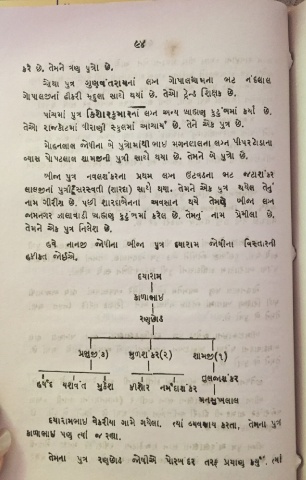 ૯૪
કરે છે. તેમને ત્રણ પુત્રો છે.
ચોથા પુત્ર ગુણવંતરાયનાં લગ્ન ગોપાલગ્રામના ભટ નંદલાલ
ગોપાલજીનાં દીકરી મૃદુલા સાથે થયાં છે. તેઓ ટ્રેન્ડ શિક્ષક છે.
પાંચમાં પુત્ર કિશોરકુમારનાં લગ્ન અન્ય બ્રાહ્મણ કુટુંબમાં કર્યાં છે.
તેઓ રાજકોટમાં વીરાણી સ્કુલમાં આચાર્ય છે, તેને એક પુત્ર છે.
મોહનલાલ જોષીના બે પુત્રોમાંથી ભાઈ મગનલાલના લગ્ન પીપરટોડાના
વ્યાસ પોપટલાલ શામજીની પુત્રી સાથે થયા છે. તેમને બે પુત્રો છે.
બીજા પુત્ર નવલશંકરના પ્રથમ લગ્ન ઉંટવડના ભટ જટાશંકર
લાલજીનાં પુત્રી સરસ્વતી (શારદા) સાથે થયા. તેમને એક પુત્ર થયેલ તેનું
નામ ગીરીશ છે. પછી શારદાબેનના અવસાન થયે તેમણે બીજા લગ્ન
જામનગર ઝાલાવાડી બ્રાહ્મણ કુટુંબમાં કરેલ છે. તેમનું નામ પ્રેમીલા છે,
તેમને એક પુત્ર નિલેશ છે.
હવે નાનજી જોષીના બીજા પુત્ર દયારામ જોષીના વિસ્તારની
હકીકત જોઈએ.
દયારામ
કાળાભાઈ
રણછોડ
પ્રભુજી(૩) મુળશંકર(૨) શામજી(૧)
હર્ષદ યશવંત મુકેશ કિશોર નર્મદાશંકર તુલજાશંકર
મનસુખલાલ
દયારામભાઈ વેકરીયા ગામે ગયેલા. ત્યાં વ્યવસાય કરતા, તેમના પુત્ર
કાળાભાઈ પણ ત્યાં જ રહ્યા.
તેમના પુત્ર રણછોડ જોષીએ પોરબંદર તરફ પ્રયાણ કર્યું. ત્યાં